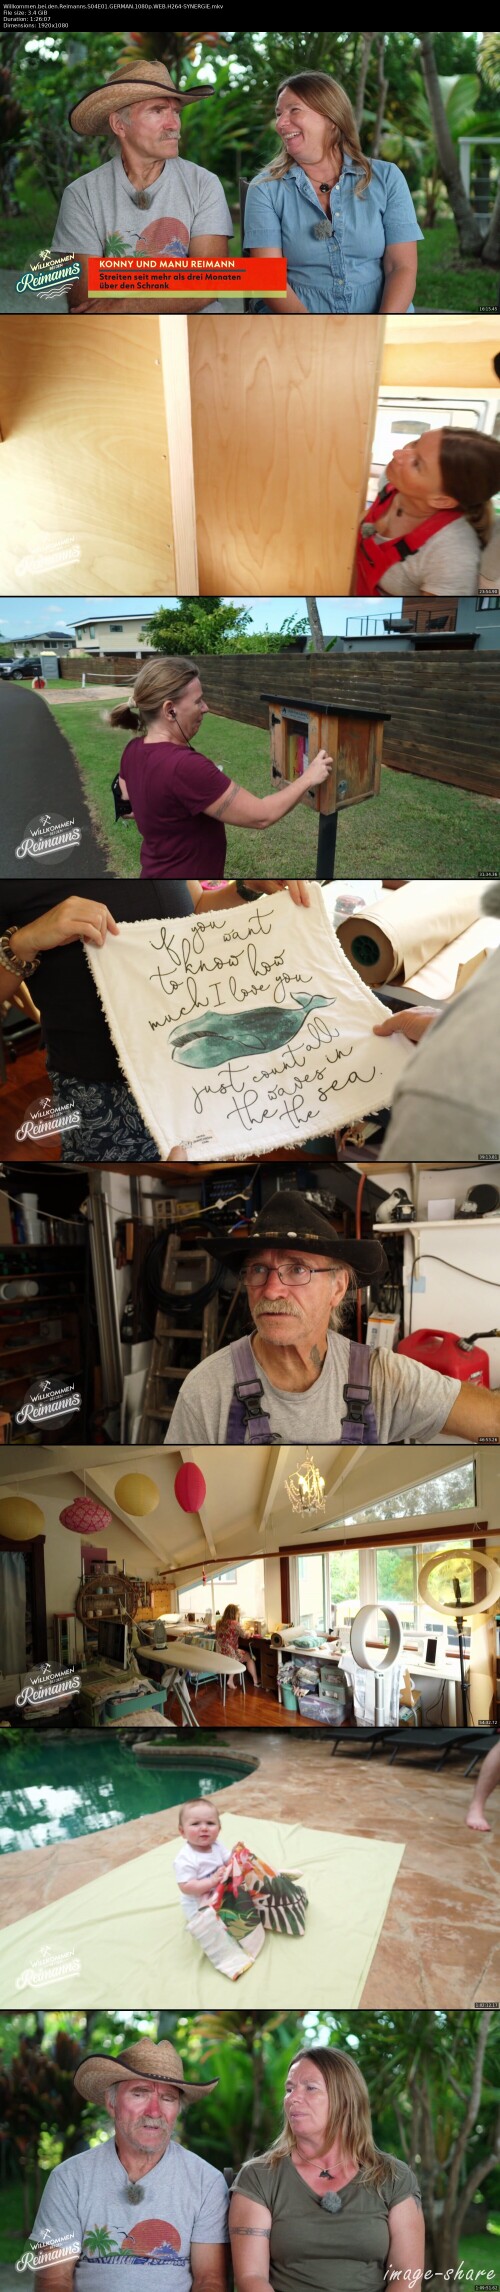 Willkommen.bei.den.Reimanns.S04E01.GERMAN.1080p.WEB.H264-SYNERGiE.mkv
File size: 3,4 GiB
Duration: 1:26:07
Dimensions: 1920x1080
WILLKOMMEN
BEI DEN
Reimanns
KONNY UND MANU REIMANN
Streiten seit mehr als drei Monaten
über den Schrank
Reimanns
WILLKOMMEN
BEI DEN
Reimanns
if you want
to know how
much I love you
just count all
the waves in
the sea.
WILLKOMMEN
BEI DEN
Reimanns
WILLKOMMEN
BEI DEN
Reimanns
WILLKOMMEN
BEI DEN
Reimanns
WILLKOMMEN
BEI DEN
Reimanns
WILLKOMMEN
BEI DEN
Reimanns
image-share